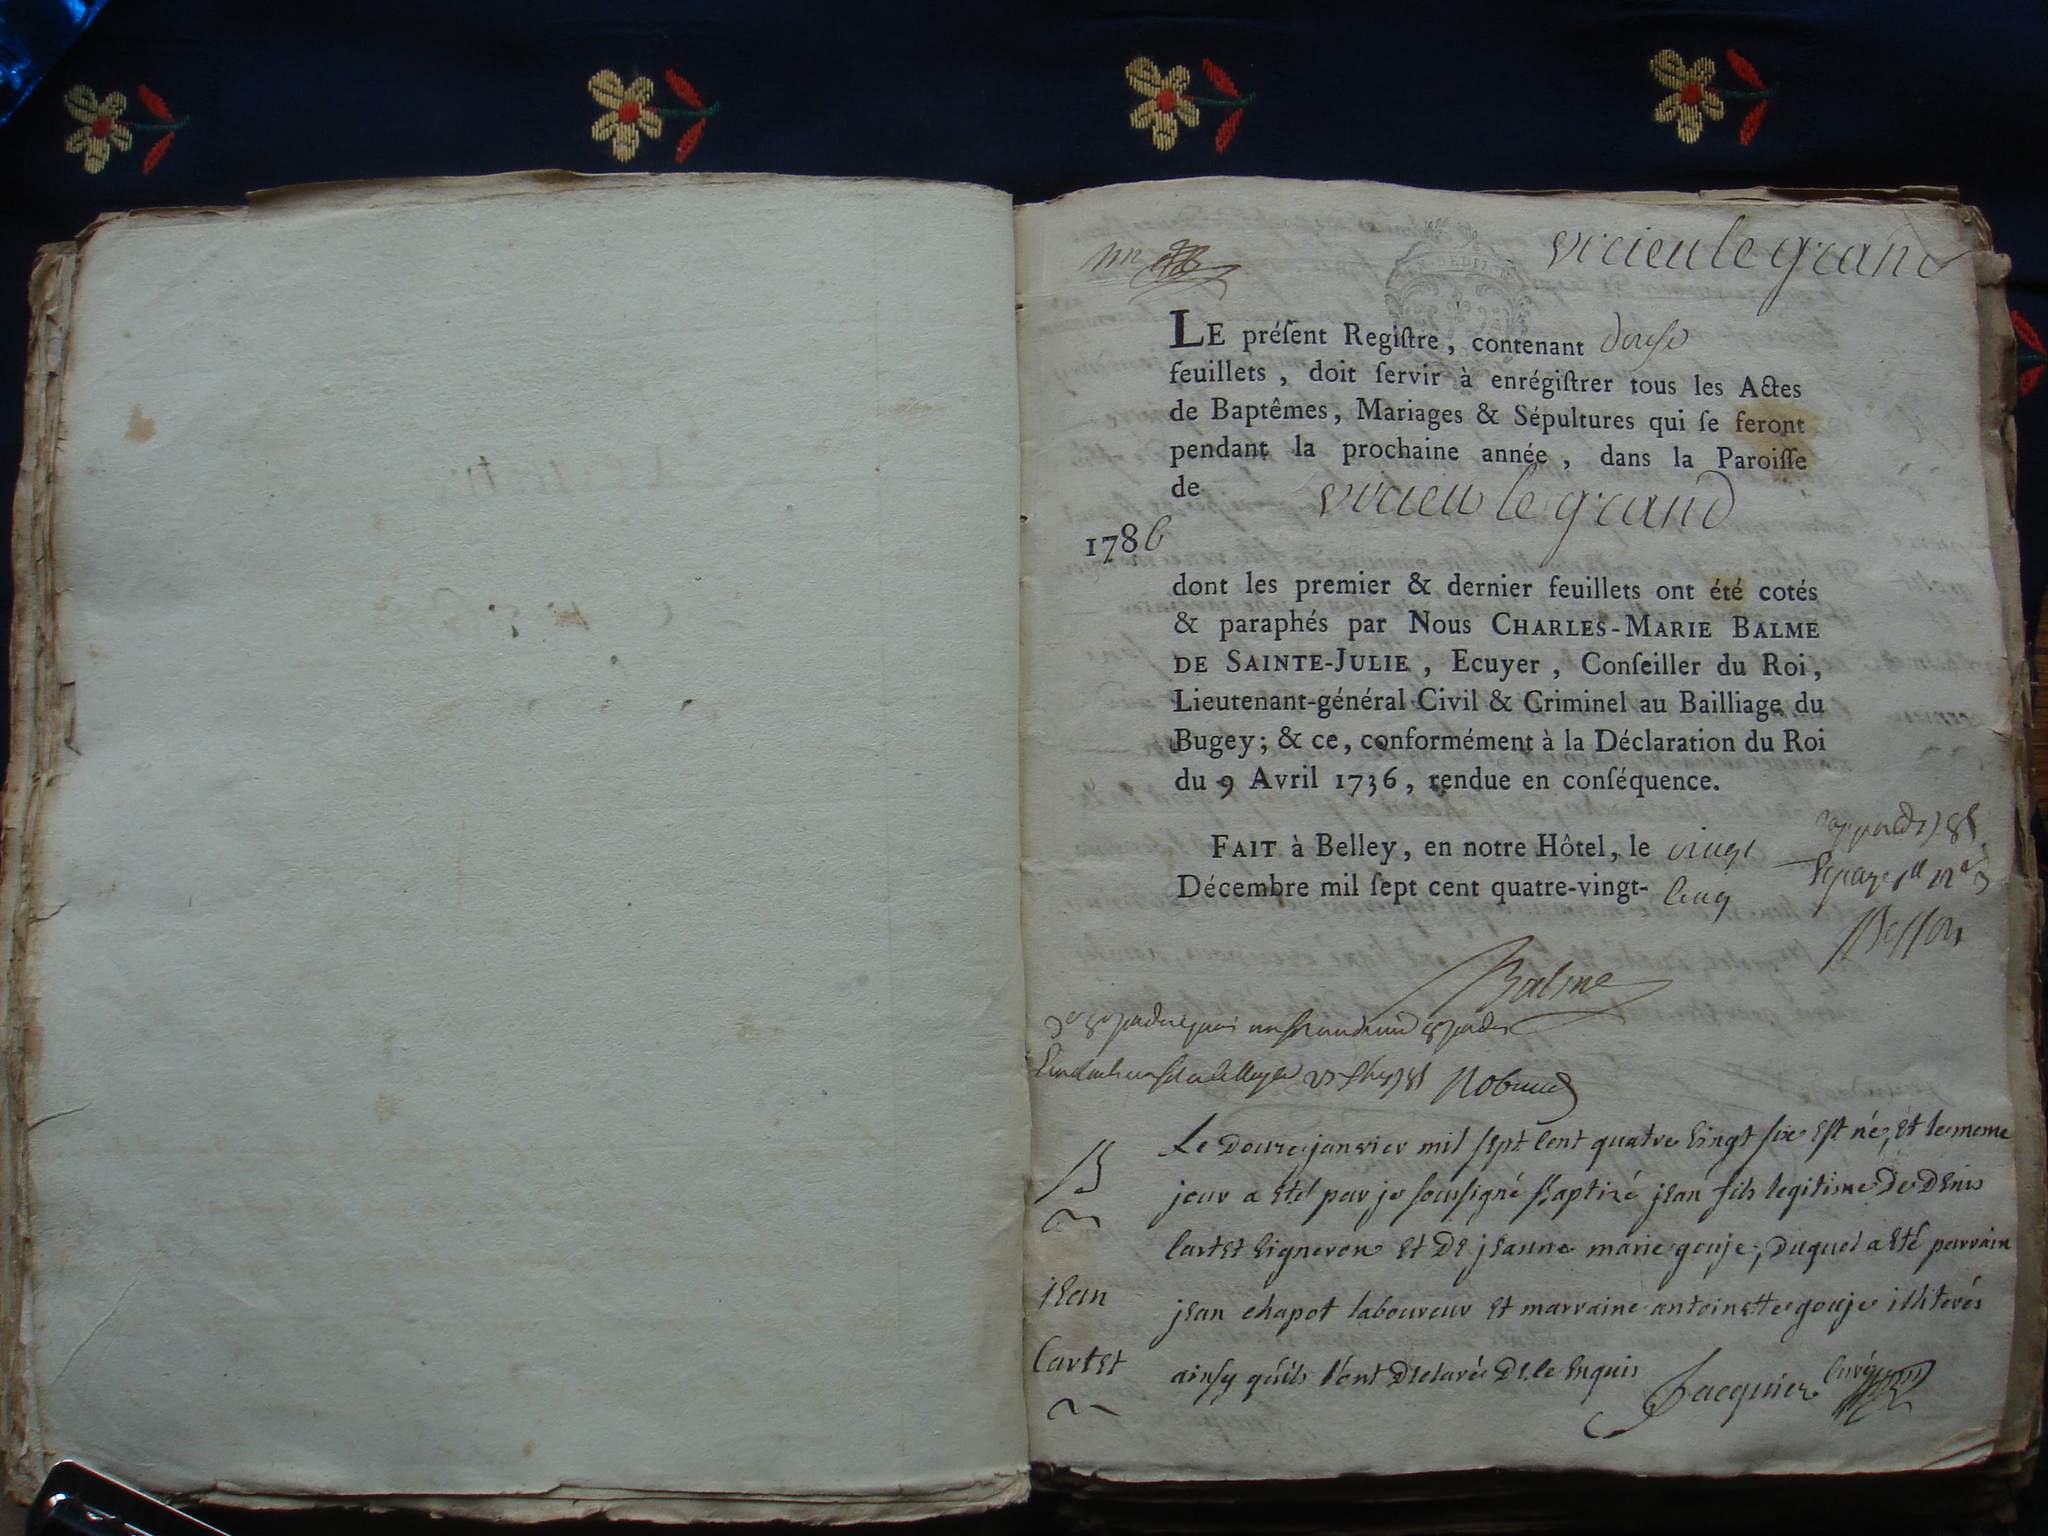 virieu le grand
LE préſent Regiſtre, contenant douze
feuillets, doit ſervir à enrégiſtrer tous les Actes
de Baptêmes, Mariages & Sépultures qui ſe feront
pendant la prochaine année, dans la Paroiſſe
de virieu le grand
1786
dont les premier & dernier feuillets ont été cotés
& paraphés par Nous CHARLES-MARIE BALME
DE SAINTE-JULIE, Ecuyer, Conſeiller du Roi,
Lieutenant-général Civil & Criminel au Bailliage du
Bugey; & ce, conformément à la Déclaration du Roi
du 9 Avril 1736, rendue en conſéquence.
FAIT à Belley, en notre Hôtel, le vingt
Décembre mil ſept cent quatre-vingt- cinq
Balme
B
jean
Cartet
Le douze janvier mil sept cent quatre vingt six est né, et le meme
jour a eté par je soussigné Baptizé jean fils legitime de Denis
Cartet vigneron et de jeanne marie gouje, duquel a eté parrain
jean chapot laboureur et marraine antoinette gouje illiterés
ainsy qu'ils l'ont declaré de ce enquis Jacquier curé